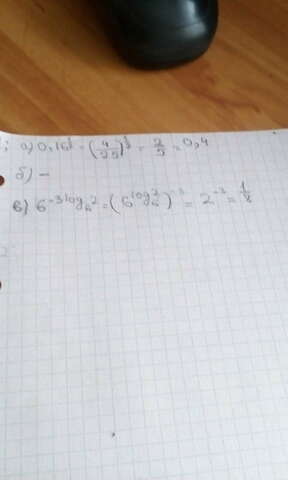 а) 0,16^½ = (4/25)^½ = 2/5 = 0,4
б) —
в) 6^(-3log₆2) = (6^(log₆2))^(-3) = 2^(-3) = 1/8